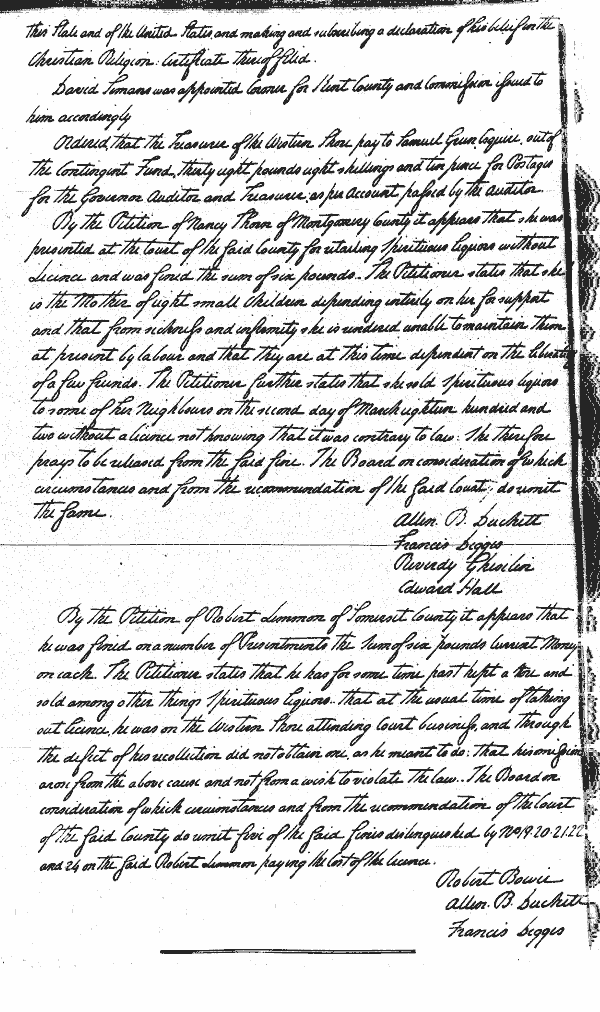 this State and of the United States, and making and subscribing a declaration of his belief in the
Christian Religion: Certificate thereof filed.
David Simans was appointed Coroner for Kent County and Commission issued to
him accordingly
Ordered, that the Treasurer of the Western Shore pay to Samuel Green Esquire, out of
the Contingent Fund, thirty eight pounds eight shillings and ten pence for Postages
for the Governor Auditor and Treasurer, as per Account passed by the Auditor
By the Petition of Nancy Thorn of Montgomery County it appears that she was
presented at the Court of the said County for retailing Spirituous liquors without
Licence and was fined the sum of six pounds. The Petitioner states that she
is the Mother of eight small Children depending entirely on her for support
and that from sickness and infirmity she is rendered unable to maintain them
at present by labour and that they are at this time dependent on the liberality
of a few friends. The Petitioner further states that she sold Spirituous liquors
to some of her Neighbours on the second day of March eighteen hundred and
two without a licence not knowing that it was contrary to law: She therefore
prays to be released from the said fine. The Board on consideration of which
circumstances and from the recommendation of the said Court, do remit
the same.
Allen. B. Duckett
Francis Digges
Reverdy Ghiselin
Edward Hall
By the Petition of Robert Lemmon of Somerset County it appears that
he was fined on a number of Presentments the Sum of six pounds Current Money
on each. The Petitioner states that he has for some time past kept a Store and
sold among other things Spirituous liquors. that at the usual time of taking
out licence, he was on the Western Shore attending Court business, and through
the defect of his recollection did not obtain one, as he meant to do: That his omission
arose from the above cause and not from a wish to violate the law. The Board on
consideration of which circumstances and from the recommendation of the Court
of the said County do remit five of the said fines distinguished by No 19. 20. 21. 22
and 24 on the said Robert Lemmon paying the Cost of the licence.
Robert Bowie
Allen. B. Duckett
Francis Digges